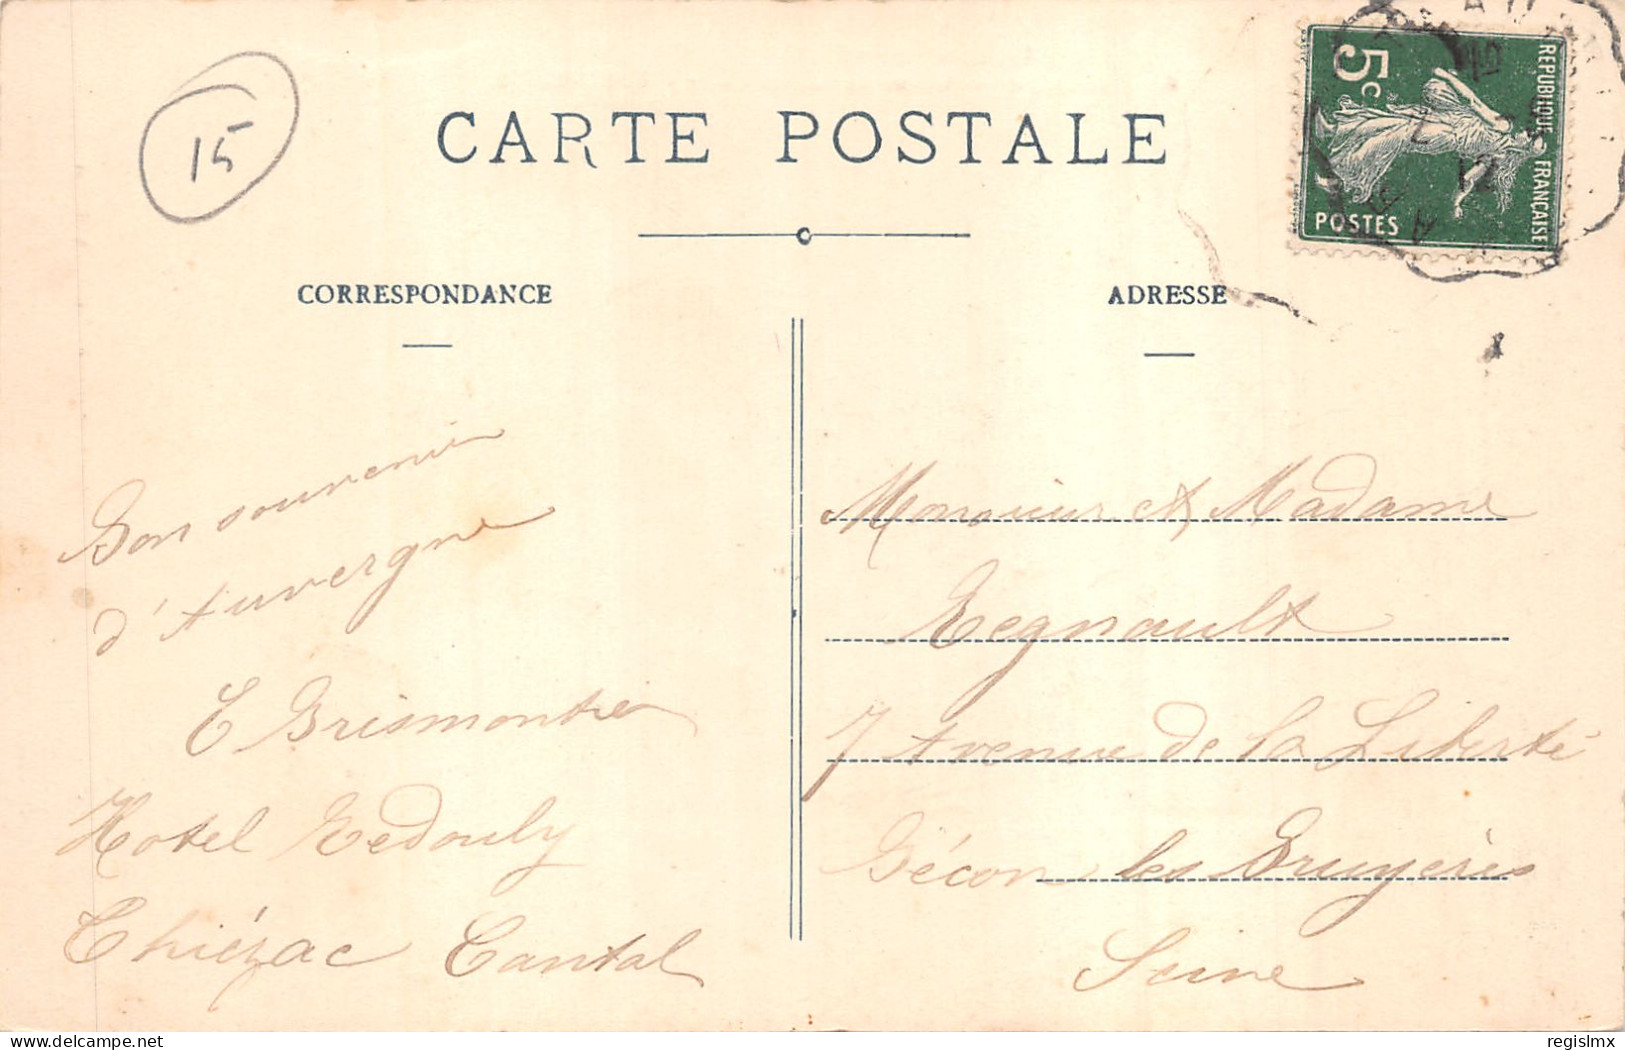 15
CARTE POSTALE
REPUBLIQUE FRANÇAISE
5c
POSTES
21
CORRESPONDANCE
ADRESSE
Bon souvenir
d'Auvergne
Hotel
Thiézac Cantal
Monsieur et Madame
Regnault
7 Avenue de la Liberté
Bécon les Bruyères
Seine
delcampe.net
regislmx